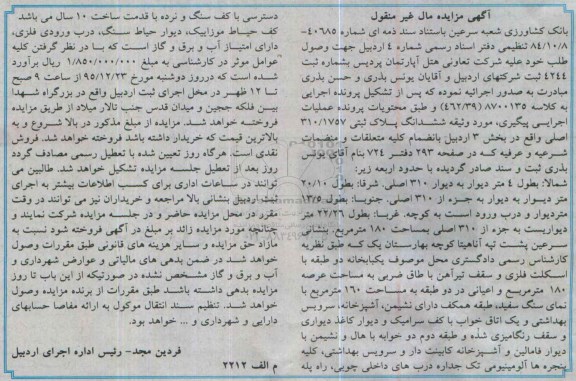 آگهی مزایده مال غیر منقول
بانک کشاورزی شعبه سرعین باستناد سند ذمه ای شماره ۴۰۶۸۵-
۸۴/۱۰/۸ تنظیمی دفتر اسناد رسمی شماره ٤ اردبیل جهت وصول
طلب خود علیه شرکت تعاونی هتل آپارتمان پردیس بشماره ثبت
٤٢٤٤ ثبت شرکتهای اردبیل و آقایان یونس بذری و حسن بذری
مبادرت به صدور اجرائیه نموده که پس از تشکیل پرونده اجرایی
به کلاسه ۸۷۰۰۱۳۵ (٤٦٢/٣٩) و طبق محتویات پرونده عملیات
اجرایی پیگیری، مورد وثیقه ششدانگ پلاک ثبتی ۳۱۰/۱۷۵۷
اصلی واقع در بخش ۳ اردبیل بانضمام کلیه متعلقات و منضمات
شرعیه و عرفیه که در صفحه ۲۹۳ دفتر ۷۲٤ بنام آقای یونس
بذری ثبت و سند صادر گردیده با حدود اربعه زیر:
شمالا: بطول ٤ متر دیوار به دیوار ۳۱۰ اصلی. شرقا: بطول ۲۰/۱۰
متر دیوار به دیوار به جزء از ۳۱۰ اصلی. جنوبا: بطول ۱۳/۵
متردیوار و درب ورود است به کوچه. غربا: بطول ۲۲/۲٦ متر
دیواریست به جزء از ۳۱۰ اصلی بمساحت ۱۸۰ مترمربع. بنشانی
سرعین پشت تپه آناهیتا کوچه بهارستان یک که طبق نظریه
کارشناس رسمی دادگستری محل موصوف یکبابخانه دو طبقه با
اسکلت فلزی و سقف تیرآهن با طاق ضربی به مساحت عرصه
۱۸۰ مترمربع و اعیانی در دو طبقه به مساحت ۱٦۰ مترمربع با
نمای سنگ سفید، طبقه همکف دارای نشیمن، آشپزخانه، سرویس
بهداشتی و یک اتاق خواب با کف سرامیک و دیوار کاغذ دیواری
و سقف رنگامیزی شده و طبقه دوم دو خوابه با هال و نشیمن با
دیوار فامالین و آشپزخانه کابینت دار و سرویس بهداشتی، کلیه
پنجره ها آلومینیومی تک جداره درب های داخلی چوبی، راه پله
دسترسی با کف سنگ و نرده با قدمت ساخت ۱۰ سال می باشد
کف حیاط موزاییک، دیوار حیاط سنگ، درب ورودی فلزی،
دارای امتیاز آب و برق و گاز است که با در نظر گرفتن کلیه
عوامل موثر در کارشناسی به مبلغ ۱/۸۵۰/۰۰۰/۰۰۰ ریال برآورد
شده است که درروز دوشنبه مورخ ۹۵/۱۲/۲۳ از ساعت ۹ صبح
تا ۱۲ ظهر در محل اجرای ثبت اردبیل واقع در بزرگراه شهدا
بین فلکه ججین و میدان قدس جنب تالار میلاد از طریق مزایده
فروخته خواهد شد. مزایده از مبلغ مذکور در بالا شروع و به
بالاترین قیمت که خریدار داشته باشد فروخته خواهد شد. فروش
نقدی است. هرگاه روز تعیین شده با تعطیل رسمی مصادف گردد
روز بعد از تعطیل جلسه مزایده تشکیل خواهد شد. طالبین می
توانند در ساعات اداری برای کسب اطلاعات بیشتر به اجرای
ثبت اردبیل بنشانی بالا مراجعه و خریداران نیز می توانند در وقت
مقرر در محل مزایده حاضر و در جلسه مزایده شرکت نمایند و
چنانچه مورد مزایده زائد بر مبلغ در آگهی فروخته شود نسبت به
مازاد حق مزایده و سایر هزینه های قانونی طبق مقررات وصول
خواهد شد در ضمن بدهی های مالیاتی و عوارض شهرداری و
آب و برق و گاز مشخص نشده در صورتیکه از این باب تا روز
مزایده بدهی داشته باشد طبق مقررات از برنده مزایده وصول
خواهد شد. تنظیم سند انتقال موکول به ارائه مفاصا حسابهای
دارایی و شهرداری و ... خواهد بود.
فردین مجد- رئیس اداره اجرای اردبیل
م الف ۲۲۱۲